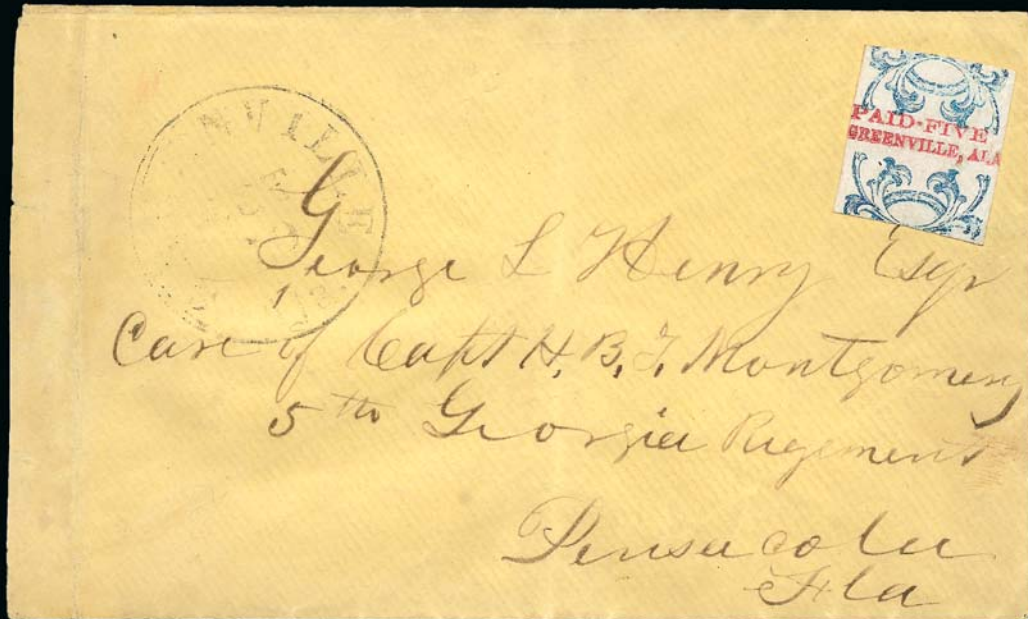 PAID-FIVE
GREENVILLE, ALA
NVILLE
George L Henry Esqr
Care of Capt H. B. T. Montgomery
5th Georgia Regiment
Pensacola
Fla